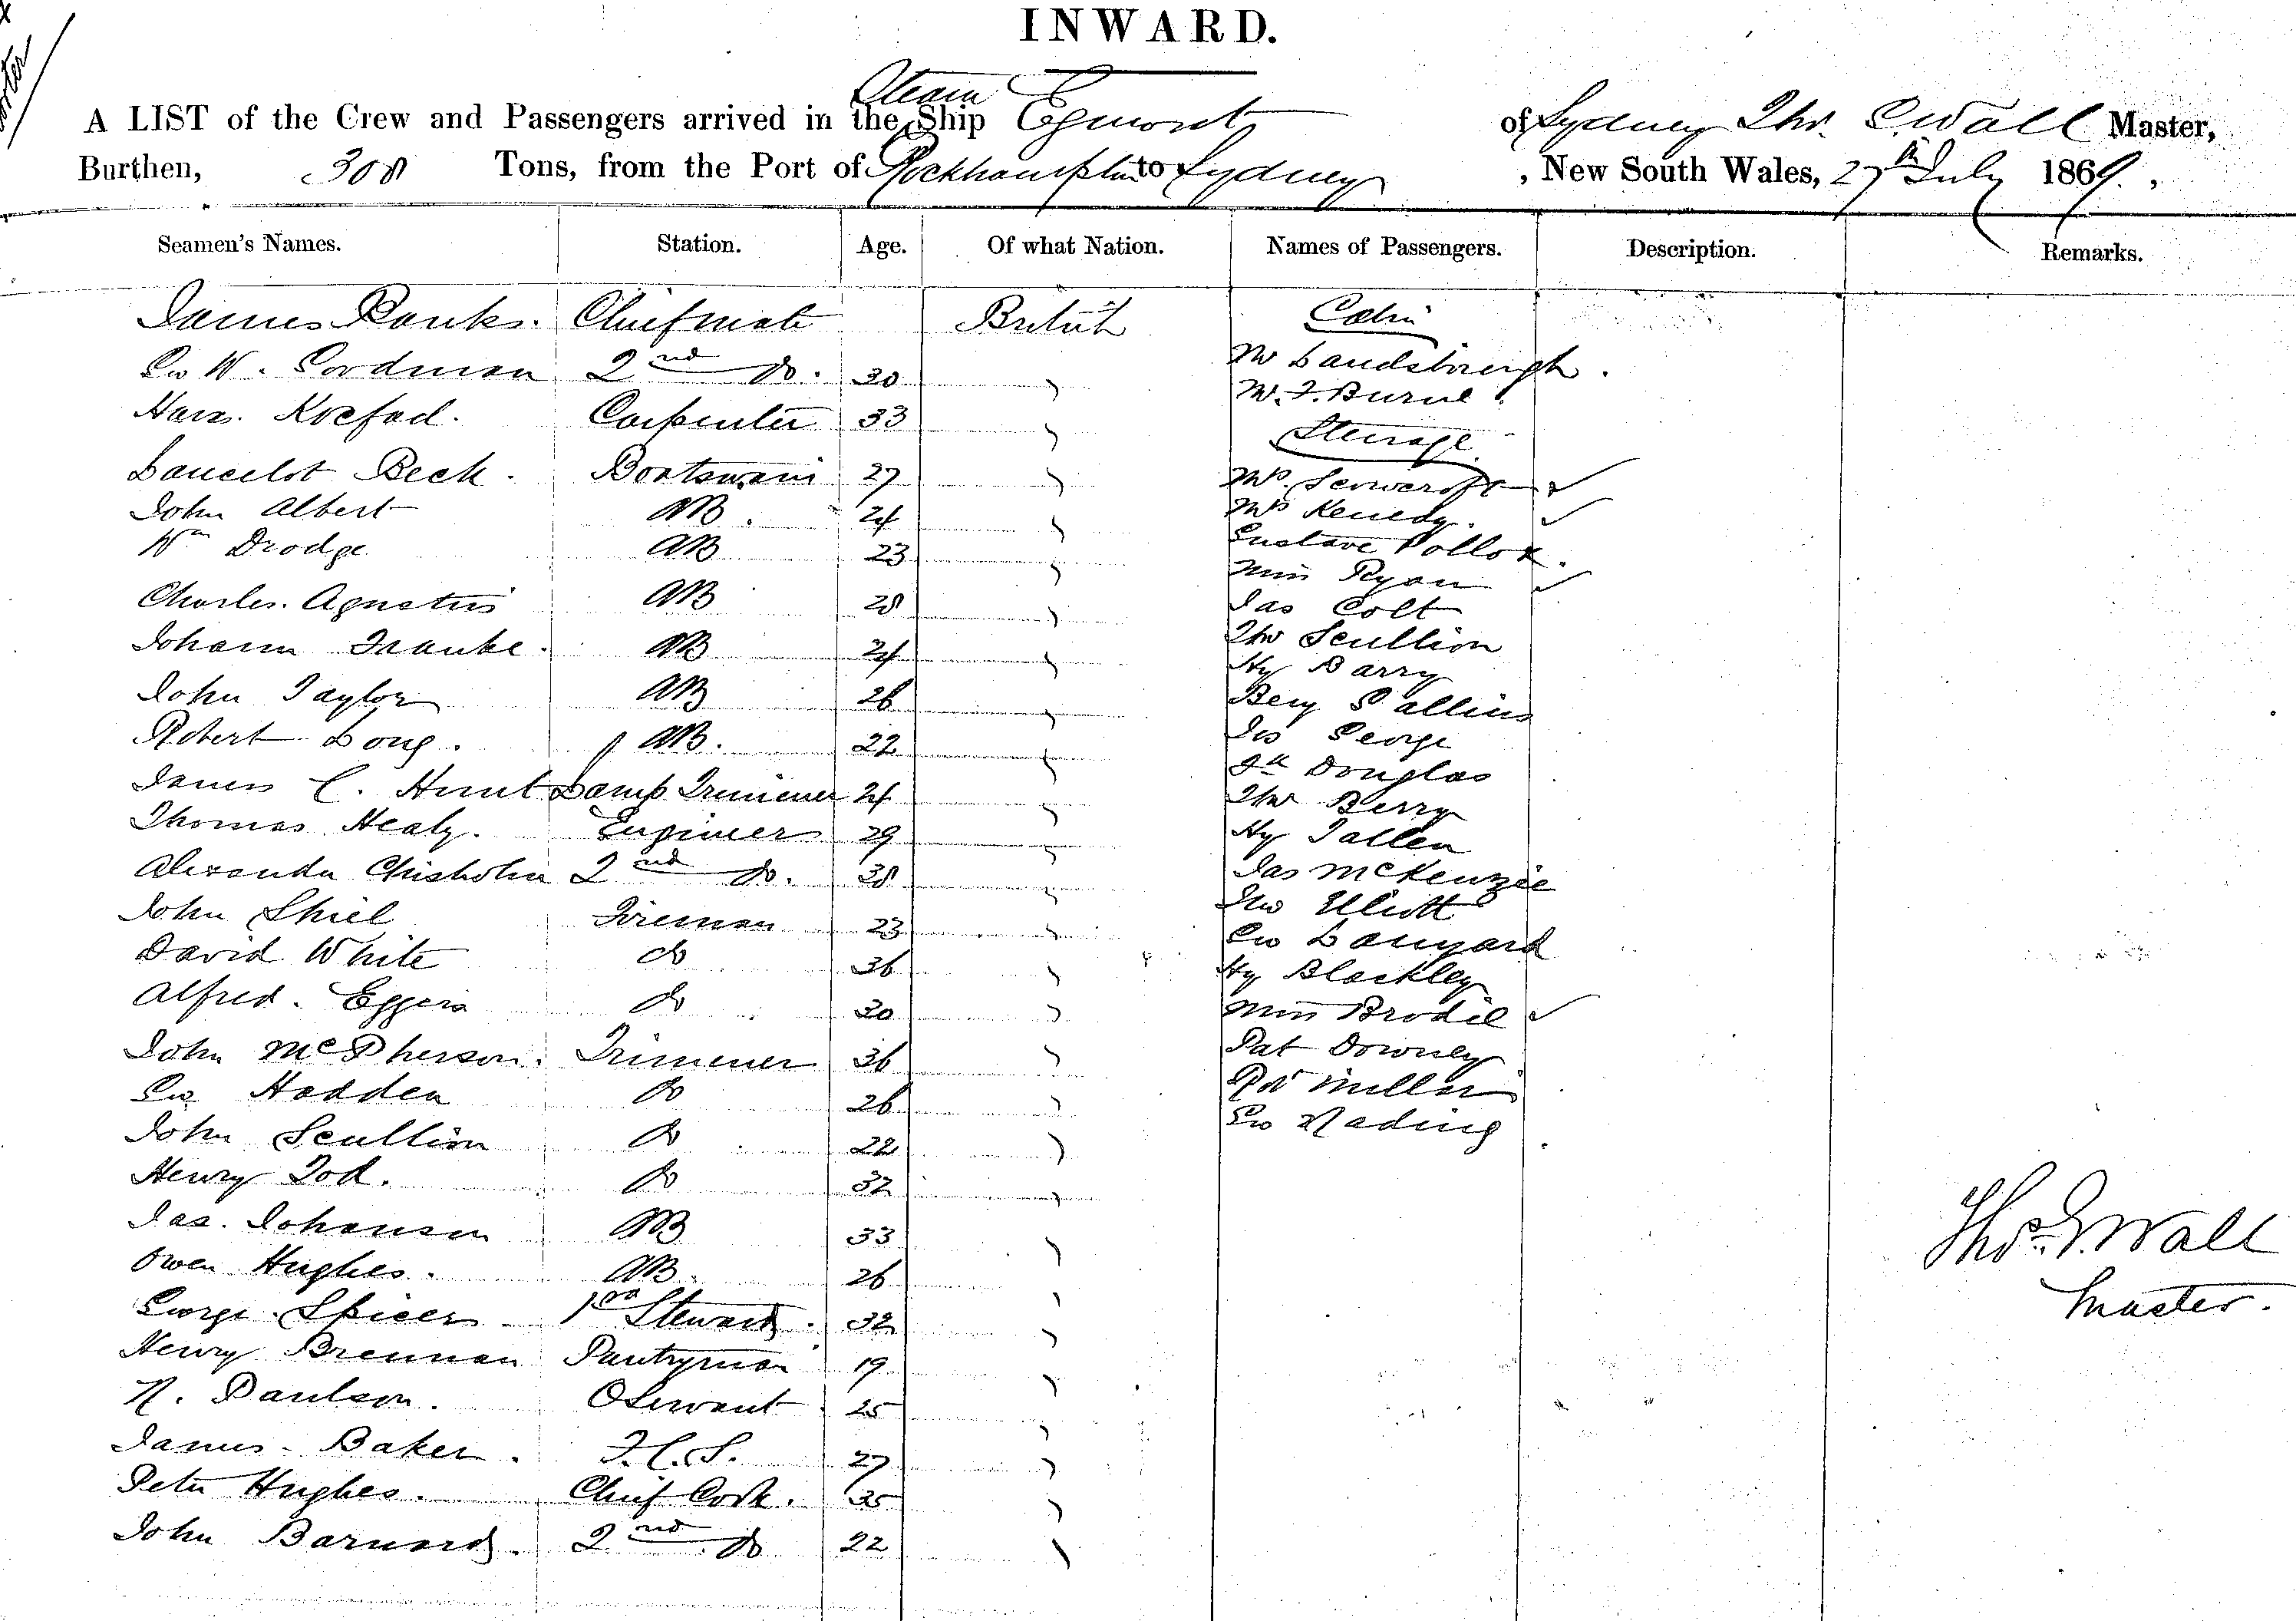 INWARD.
A LIST of the Crew and Passengers arrived in the Steam Ship Egmont of Sydney Thos. E. Wall Master,
Burthen, 308 Tons, from the Port of Rockhampton to Sydney, New South Wales, 27th July 1869.
Seamen's Names. Station. Age. Of what Nation. Names of Passengers. Description. Remarks.
James Banks. Chief mate British Cabin
Geo W. Goodman 2nd do. 30 " W Landsborough.
Hans. Koefod. Carpenter 33 " W. F. Burne
Steerage
Lancelot Beck. Boatswain 27 " Mrs.
John Albert AB. 24 " Mrs Kenedy.
Wm Drodge AB 23 " Gustave Pollok.
Miss Ryan
Charles. Agustus AB 28 " Jas Colt
Johann Franke. AB 24 " Thos Scullion
Hy Barry
John Taylor AB 26 " Benj
Robert Long. AB. 22 " Jos George
Douglas
James C. Hunt Lamp Trimmer 24 " Thos Berry
Thomas Healy. Engineer 29 " Hy Tallen
Alexander Chisholm 2nd do. 38 " Jas McKenzie
John Shiel Fireman 23 " Jno Elliott
David White do 36 " Geo Langard
Alfred. Eggers do 30 " Hy Blackley
Miss Brodie
John McPherson. Trimmer 36 " Pat Downey
Geo Hadden do 26 " Rd Miller
John Scullion do 22 " Geo Nading
Henry Tod. do 32 "
Jas. Johansen AB 33 "
Owen Hughes. AB. 26 "
George Spicer Stewart. 32 "
Henry Brennan Pantryman 19 "
N. Paulson. O Servant 25 "
James Baker. F.C.S. 27 "
Peter Hughes. Chief Cook. 35 "
John Barnard. 2nd do 22 "
Thos E. Wall
Master.